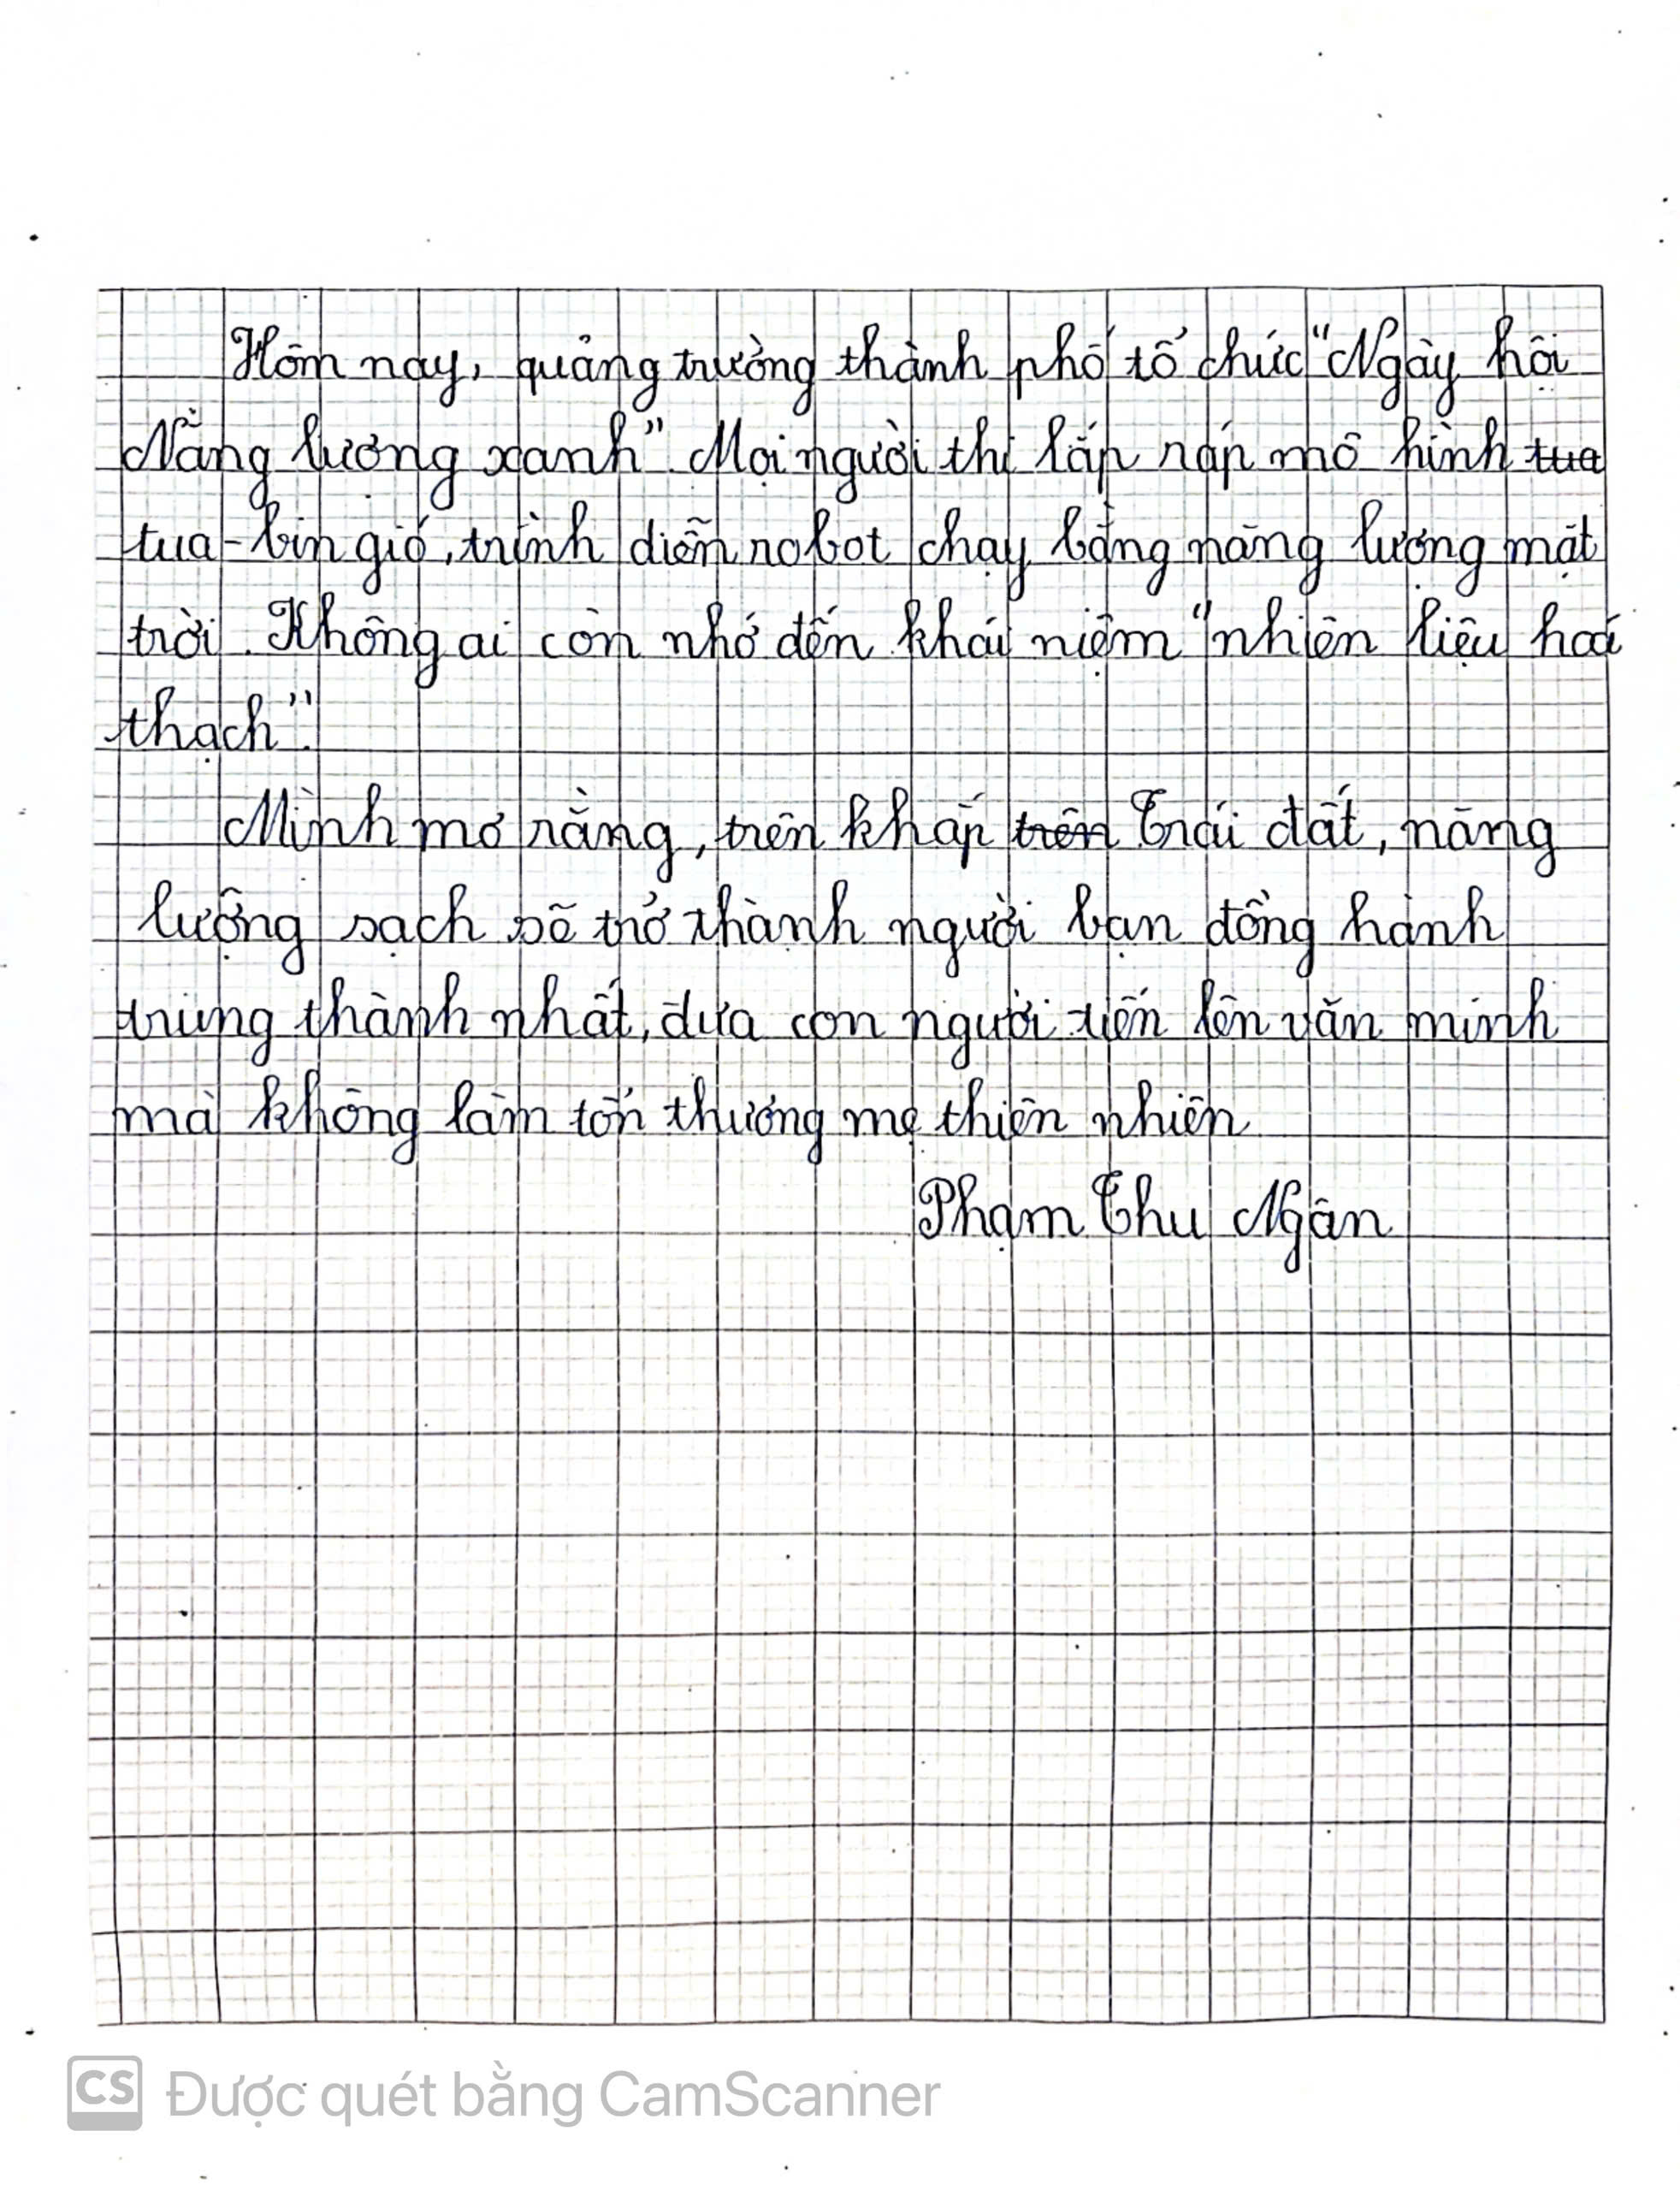 Hôm nay, quảng trường thành phố tổ chức "Ngày hội
Nằng lượng xanh". Mọi người thi lắp ráp mô hình tua
tua-bin gió, trình diễn robot chạy bằng năng lượng mặt
trời. Không ai còn nhớ đến khái niệm "nhiên liệu hoá
thạch".
Mình mơ rằng, trên khắp trên Trái đất, năng
lượng sạch sẽ trở thành người bạn đồng hành
trung thành nhất, đưa con người tiến lên văn minh
mà không làm tổn thương mẹ thiên nhiên.
Phạm Thu Ngân
CS Được quét bằng CamScanner